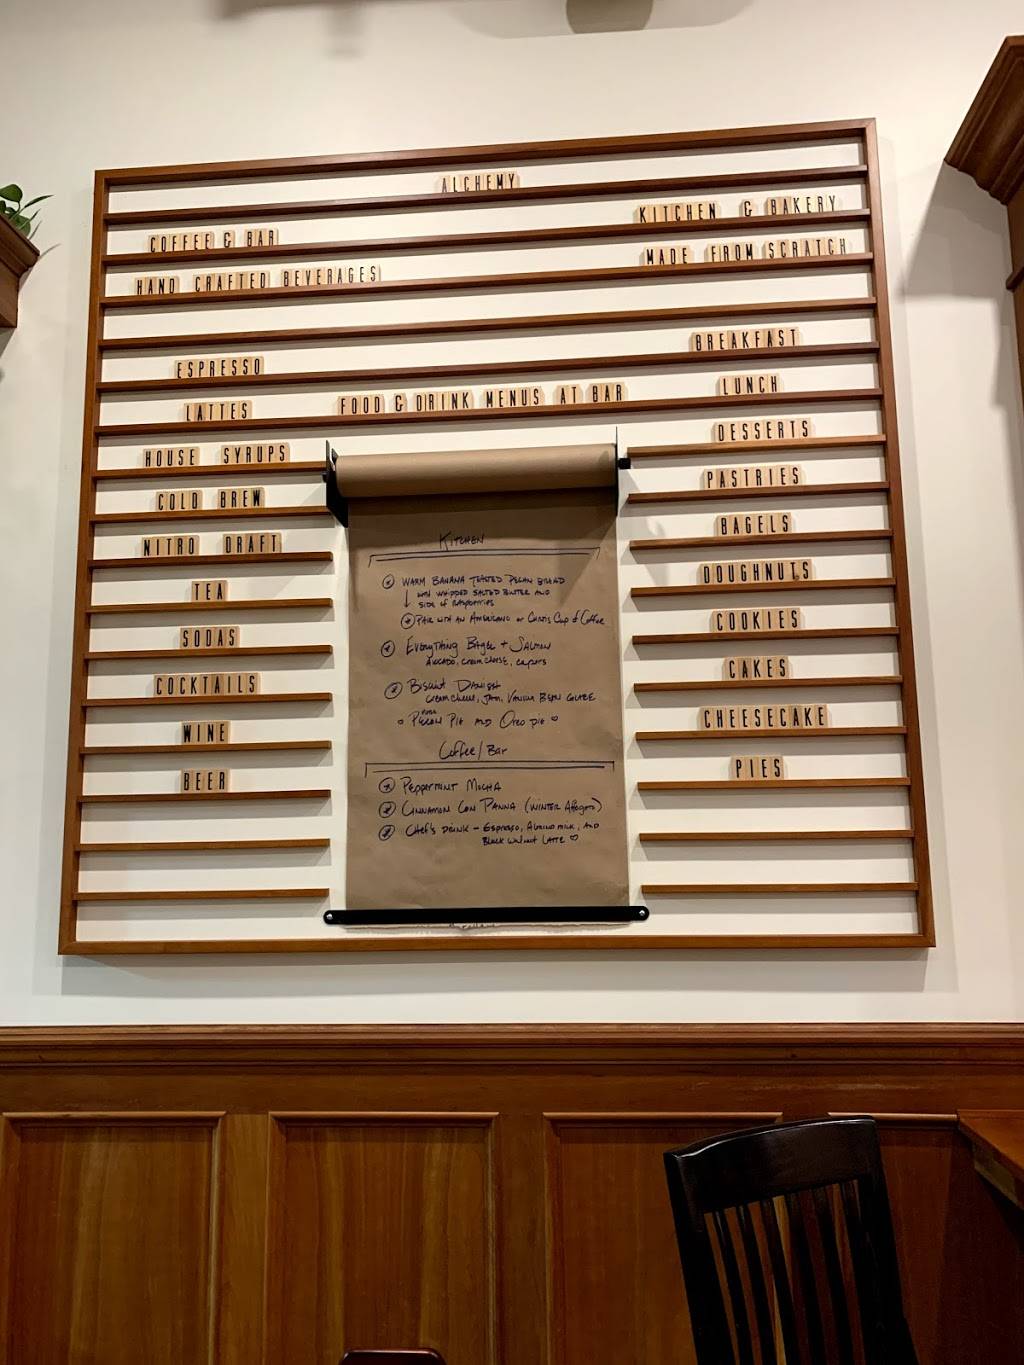 ALCHEMY
COFFEE & BAR
HAND CRAFTED BEVERAGES
ESPRESSO
LATTES
HOUSE SYRUPS
COLD BREW
NITRO DRAFT
TEA
SODAS
COCKTAILS
WINE
BEER
FOOD & DRINK MENUS AT BAR
KITCHEN
WARM BANANA TOASTED PECAN BREAD
WITH WHIPPED SALTED BUTTER AND
SIDE OF RASPBERRIES
PAIR WITH AN AMERICANO OR Cup of Coffee
EVERYTHING BAGEL + SALMON
AVOCADO, CREAM CHEESE, CAPERS
BISCUIT DANISH
CREAM CHEESE, JAM, VANILLA BEAN GLAZE
PECAN PIE AND OREO PIE
Coffee/Bar
PEPPERMINT MOCHA
CINNAMON CON PANNA (WINTER Affogato)
CHEF'S DRINK - ESPRESSO, ALMOND MILK, AND
BLACK WALNUT LATTE
KITCHEN & BAKERY
MADE FROM SCRATCH
BREAKFAST
LUNCH
DESSERTS
PASTRIES
BAGELS
DOUGHNUTS
COOKIES
CAKES
CHEESECAKE
PIES